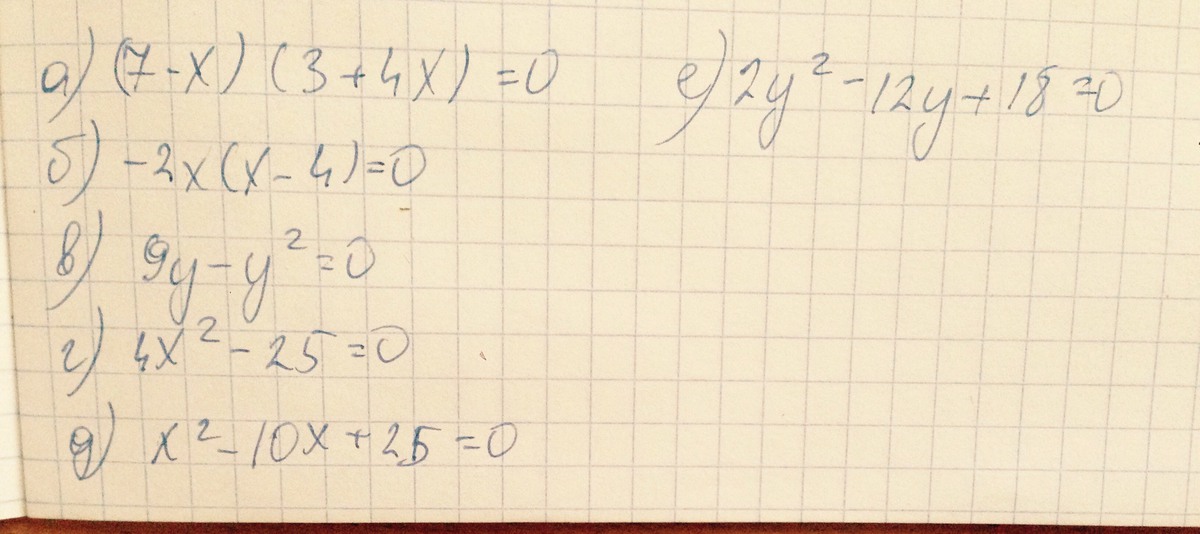 а) (7-x) (3+4x) = 0
б) -2x(x-4)=0
в) 9y-y²=0
г) 4x²-25=0
д) x²-10x+25=0
е) 2y²-12y+18=0